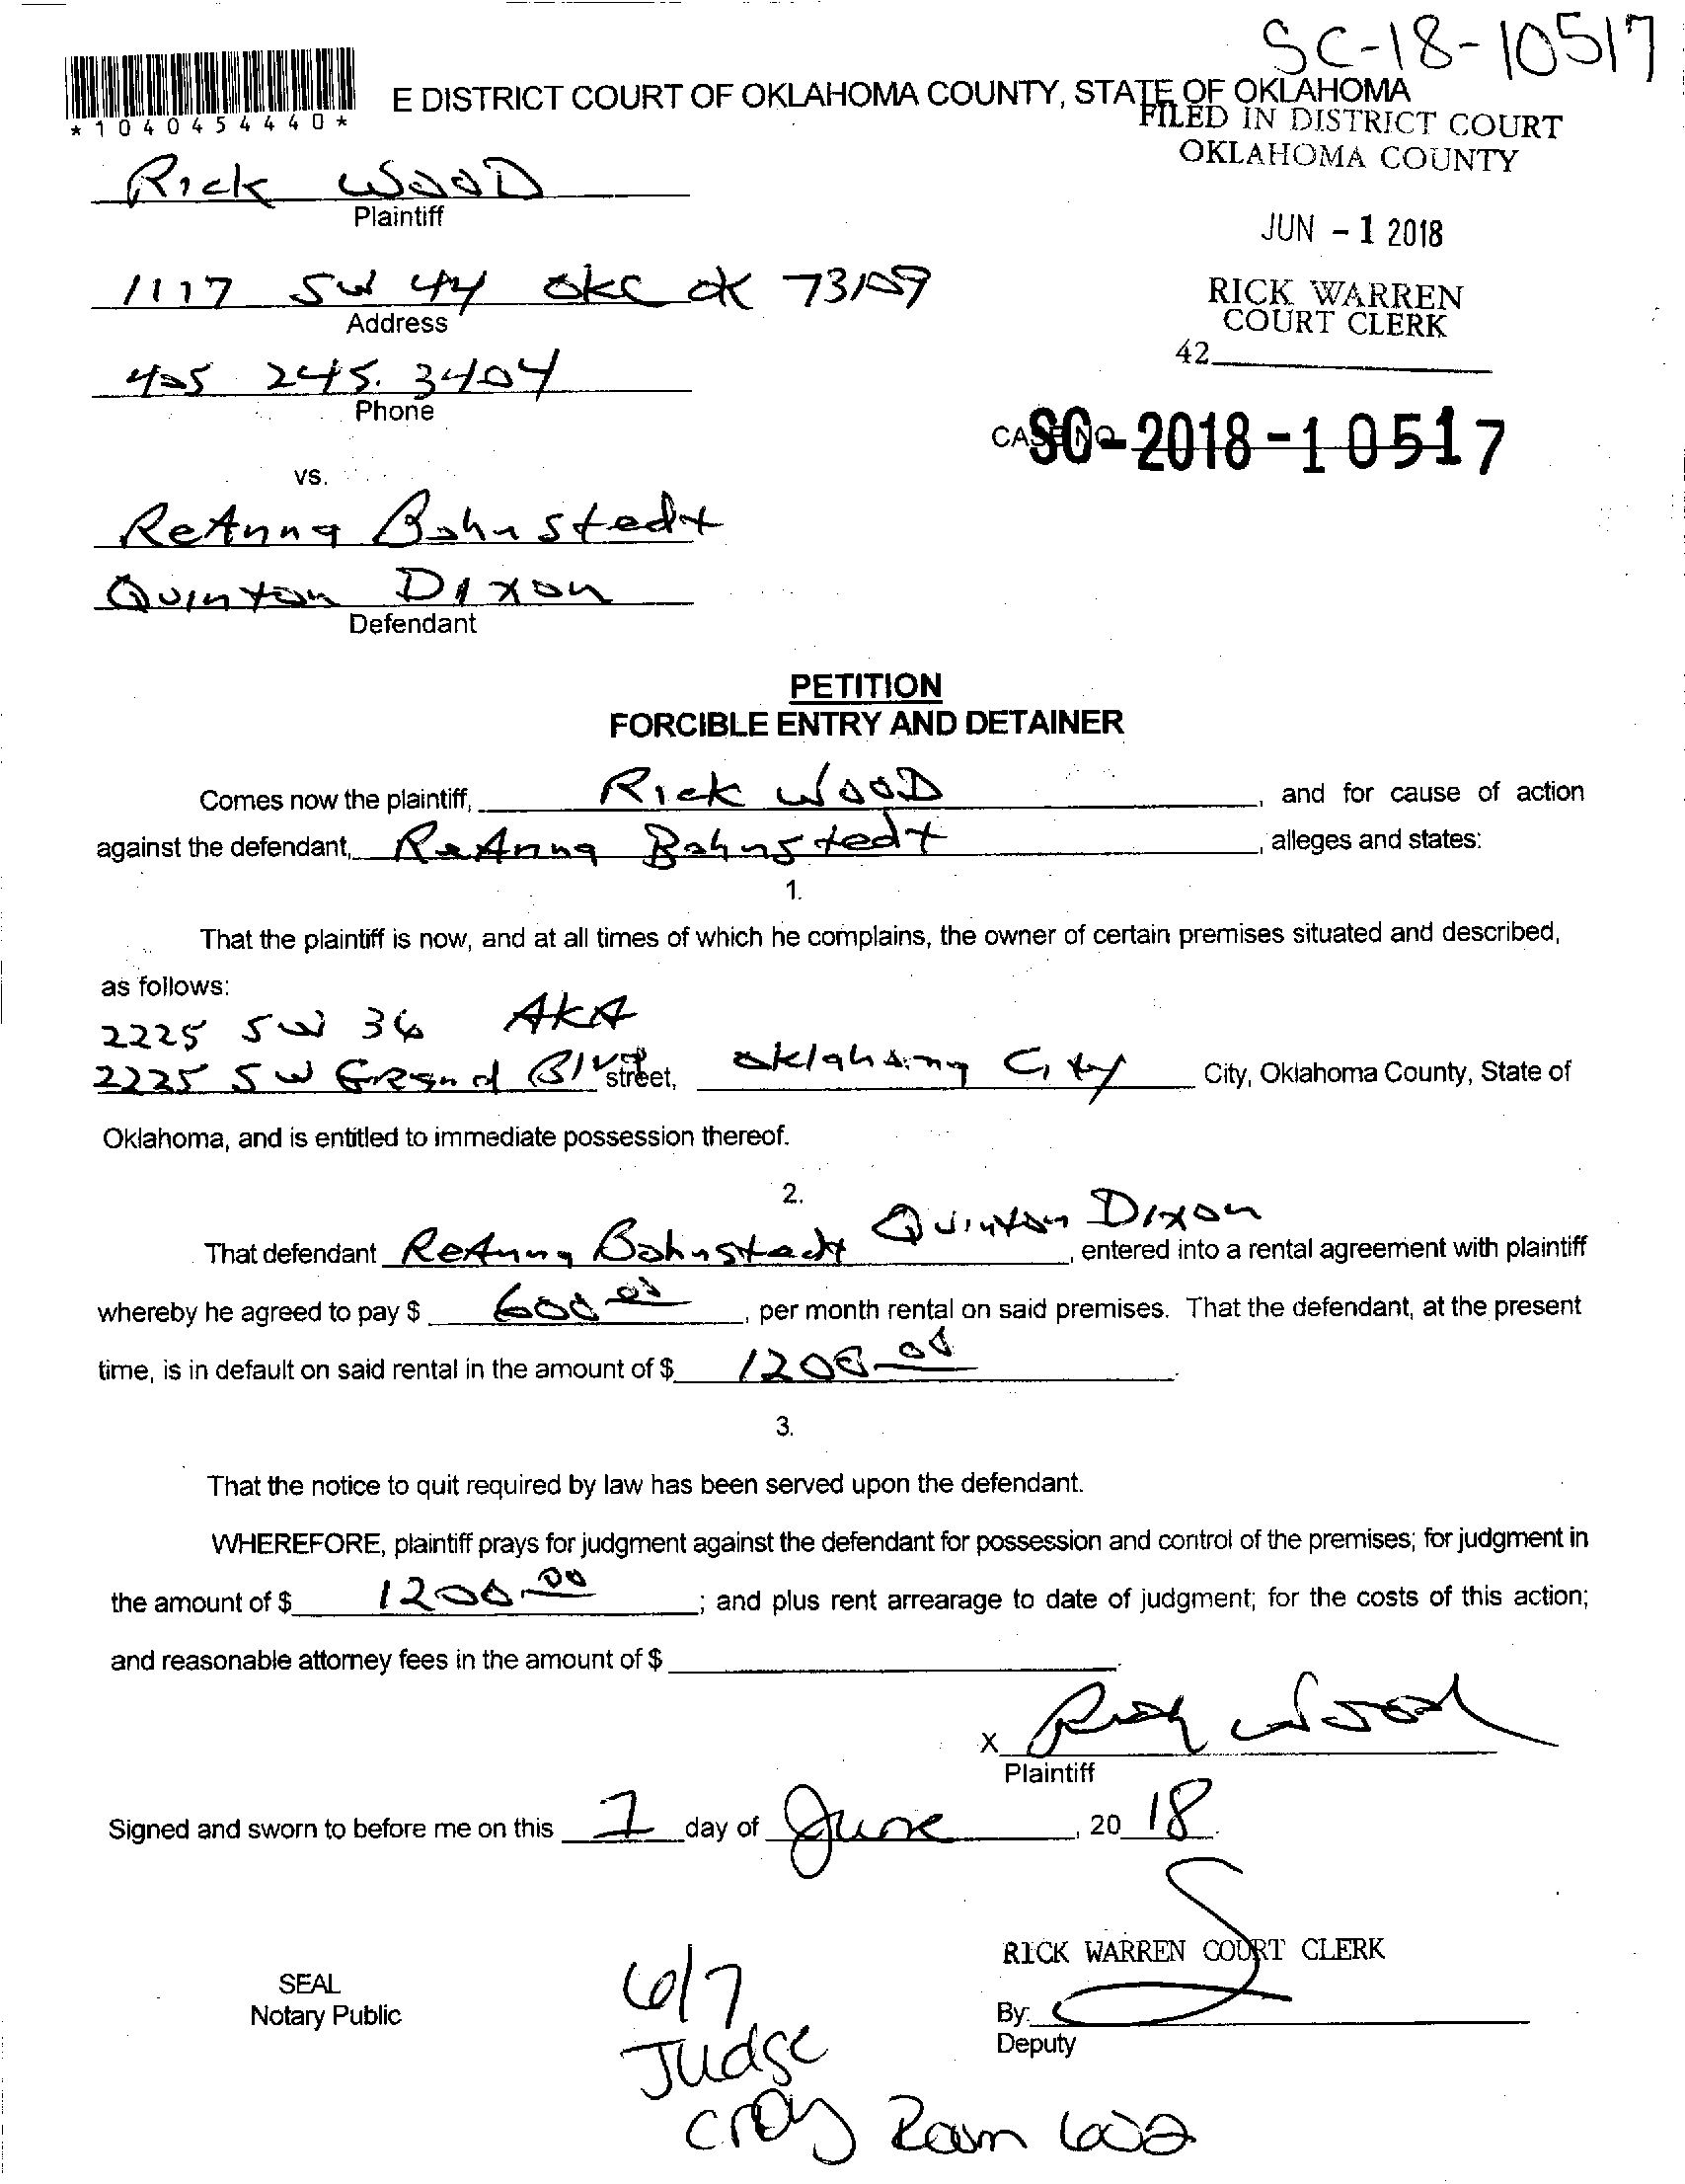 SC-18-10517
E DISTRICT COURT OF OKLAHOMA COUNTY, STATE OF OKLAHOMA
*1040454440*
FILED IN DISTRICT COURT
OKLAHOMA COUNTY
Rick WOOD
Plaintiff
JUN - 1 2018
1117 SW 44 OKC OK 73109
Address
RICK WARREN
COURT CLERK
42
405 245.3404
Phone
CASE NO. SC-2018-10517
vs.
ReAnna Bohnstedt
Quinton Dixon
Defendant
PETITION
FORCIBLE ENTRY AND DETAINER
Comes now the plaintiff, Rick WOOD, and for cause of action
against the defendant, ReAnna Bohnstedt, alleges and states:
1.
That the plaintiff is now, and at all times of which he complains, the owner of certain premises situated and described,
as follows:
2225 SW 36 AKA
2225 SW Grand Blvd street, Oklahoma City City, Oklahoma County, State of
Oklahoma, and is entitled to immediate possession thereof.
2.
That defendant ReAnna Bohnstedt Quinton Dixon, entered into a rental agreement with plaintiff
whereby he agreed to pay $ 600.00, per month rental on said premises. That the defendant, at the present
time, is in default on said rental in the amount of $ 1200.00.
3.
That the notice to quit required by law has been served upon the defendant.
WHEREFORE, plaintiff prays for judgment against the defendant for possession and control of the premises; for judgment in
the amount of $ 1200.00; and plus rent arrearage to date of judgment; for the costs of this action;
and reasonable attorney fees in the amount of $
X Rick Wood
Plaintiff
Signed and sworn to before me on this 1 day of June, 20 18.
RICK WARREN COURT CLERK
SEAL
Notary Public
By:
Deputy
6/7
Judge
Croy Room 602